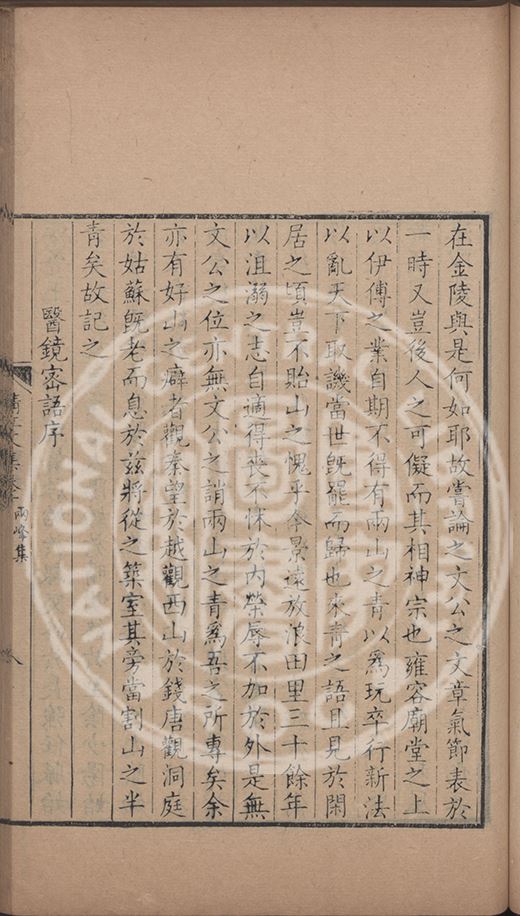 在金陵與是何如耶故嘗論之文公之文章氣節表於
一時又豈後人之可儗而其相神宗也雍容廟堂之上
以伊傅之業自期不得有兩山之青以爲玩卒行新法
以亂天下取譏當世旣罷而歸也來青之語且見於閑
居之頃豈不貽山之愧乎今景遠放浪田里三十餘年
以沮溺之志自適得喪不怵於內榮辱不加於外是無
文公之位亦無文公之誚兩山之青爲吾之所專矣余
亦有好山之癖者觀秦望於越觀西山於錢唐觀洞庭
於姑蘇旣老而息於茲將從之築室其旁當割山之半
青矣故記之
醫鏡密語序
兩峰集